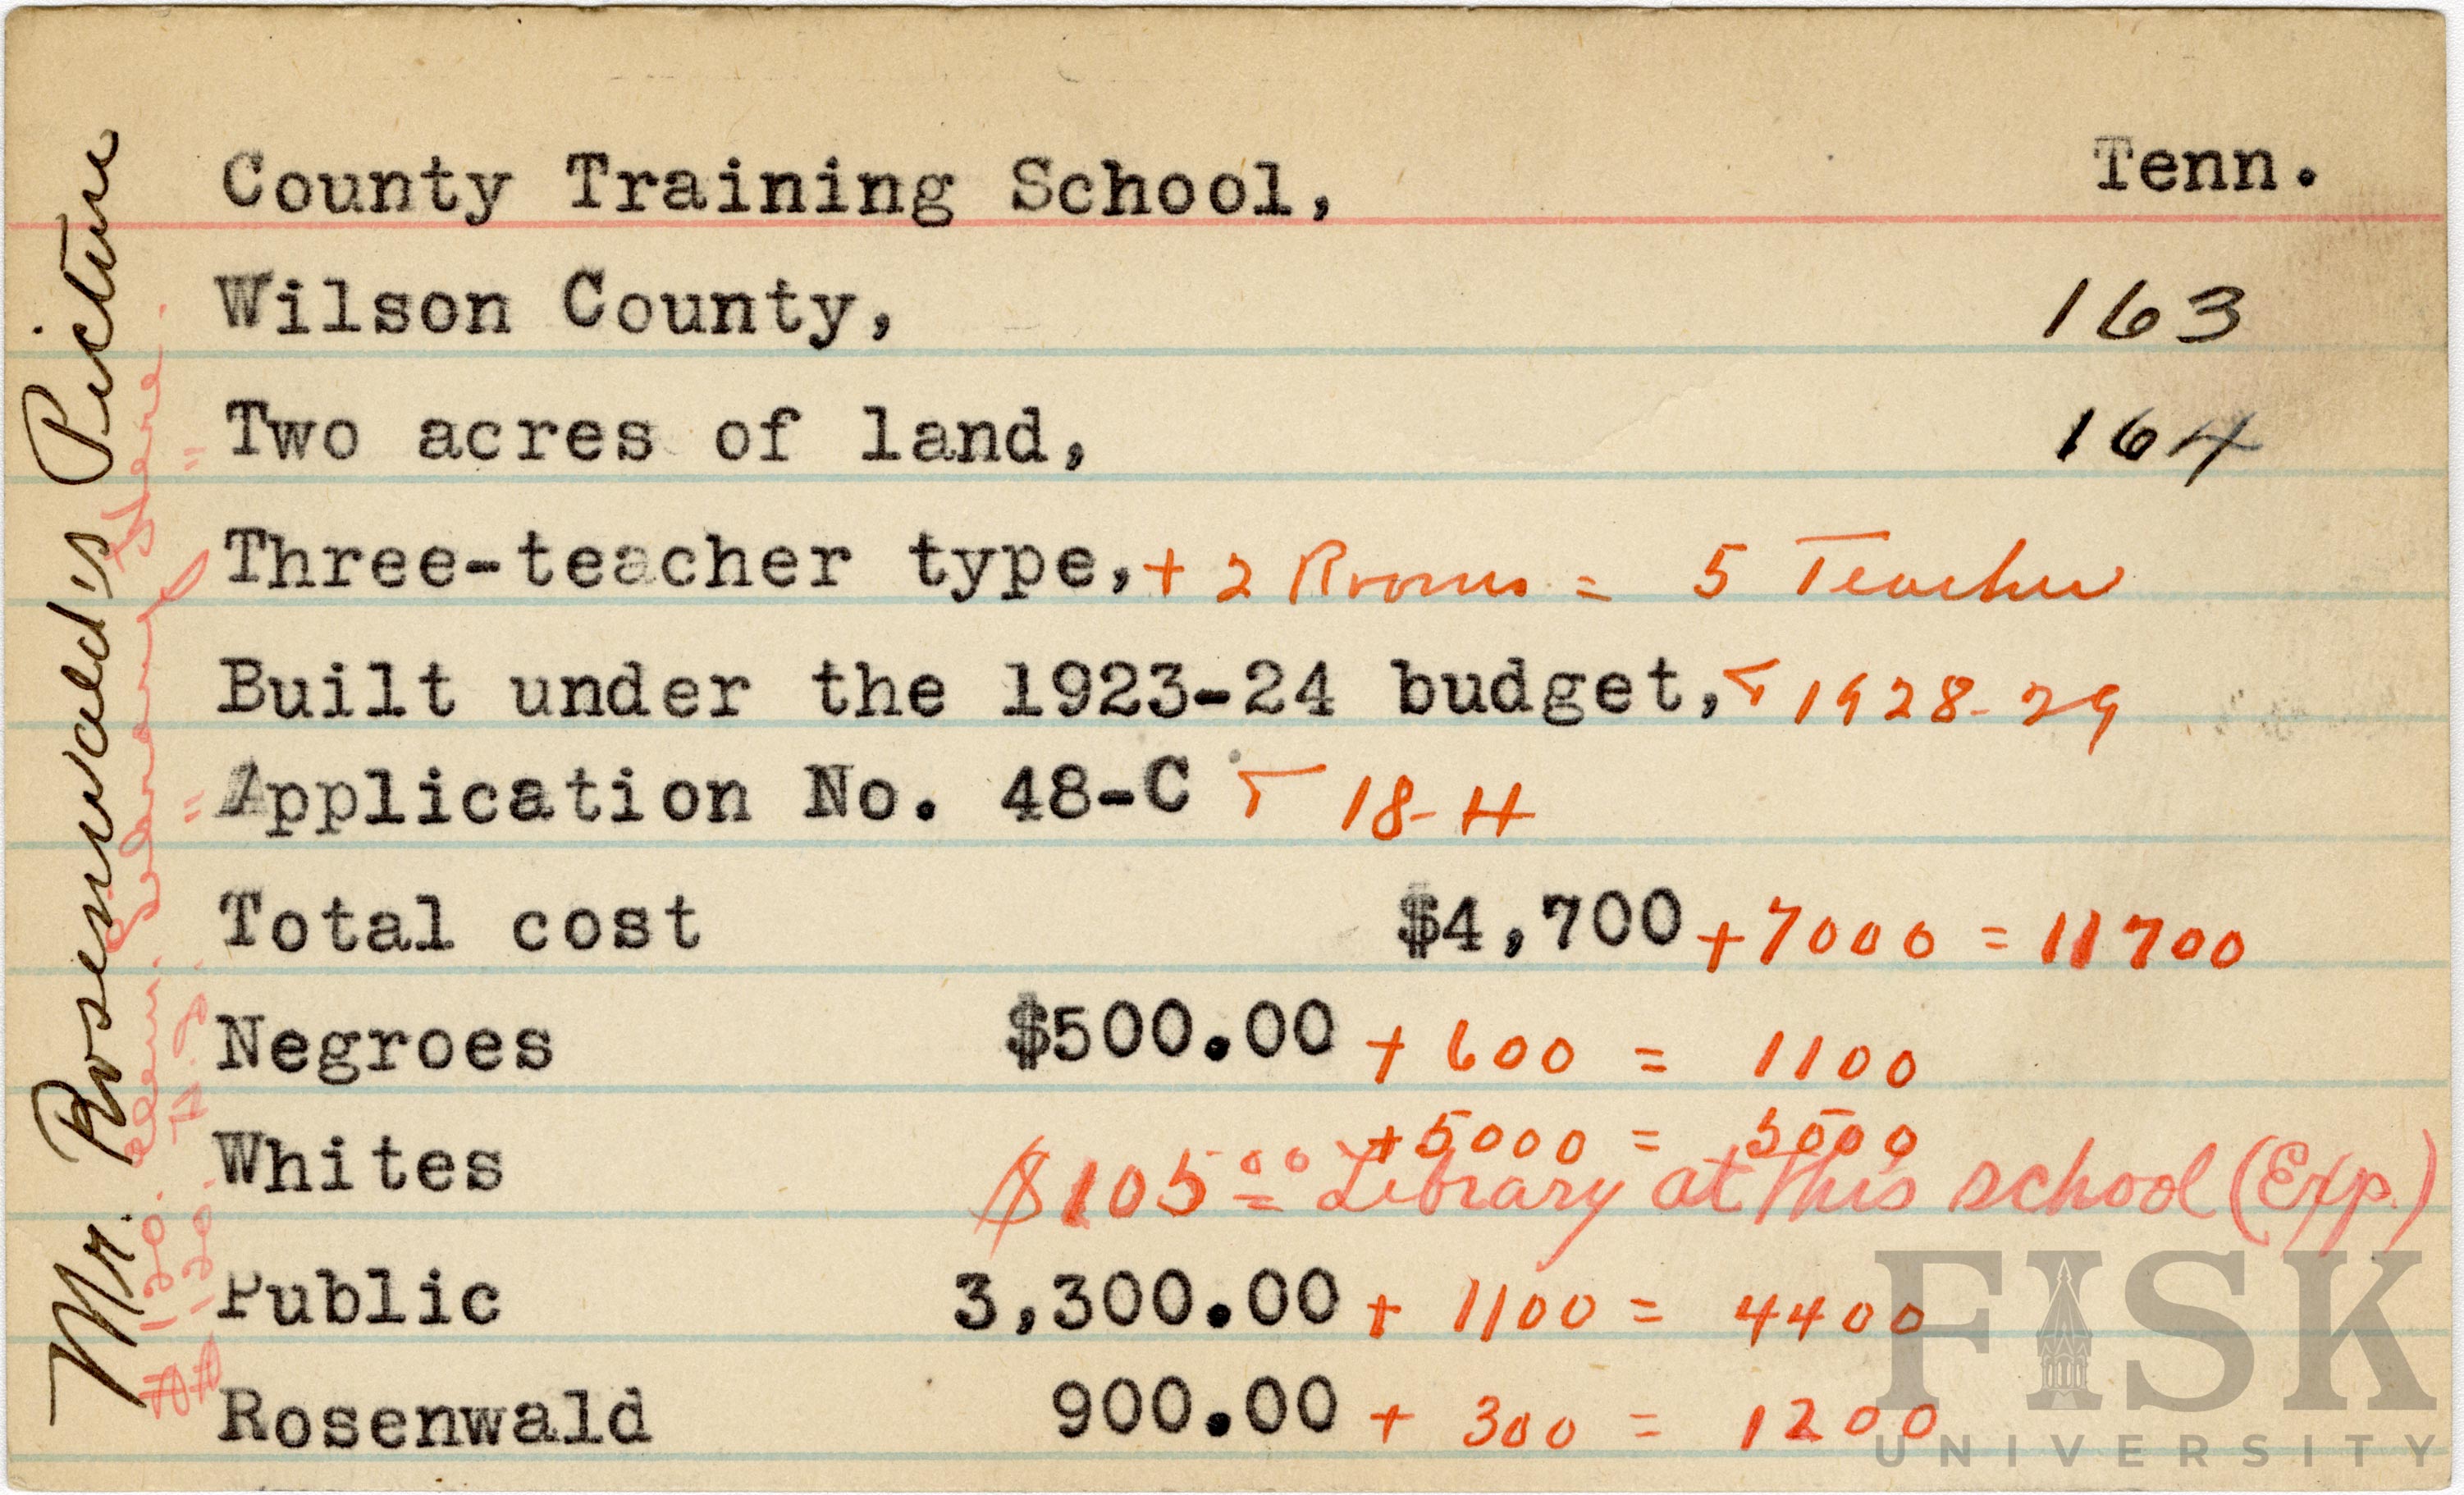 County Training School, Tenn.
Wilson County, 163
Two acres of land, 164
Three-teacher type, + 2 Rooms = 5 Teacher
Built under the 1923-24 budget, + 1928-29
Application No. 48-C + 18-H
Total cost $4,700 + 7000 = 11700
Negroes $500.00 + 600 = 1100
Whites + 5000 = 5000
$105.00 Library at this school (Exp.)
Public 3,300.00 + 1100 = 4400
Rosenwald 900.00 + 300 = 1200
Mr. Rosenwald's Picture
FISK
UNIVERSITY